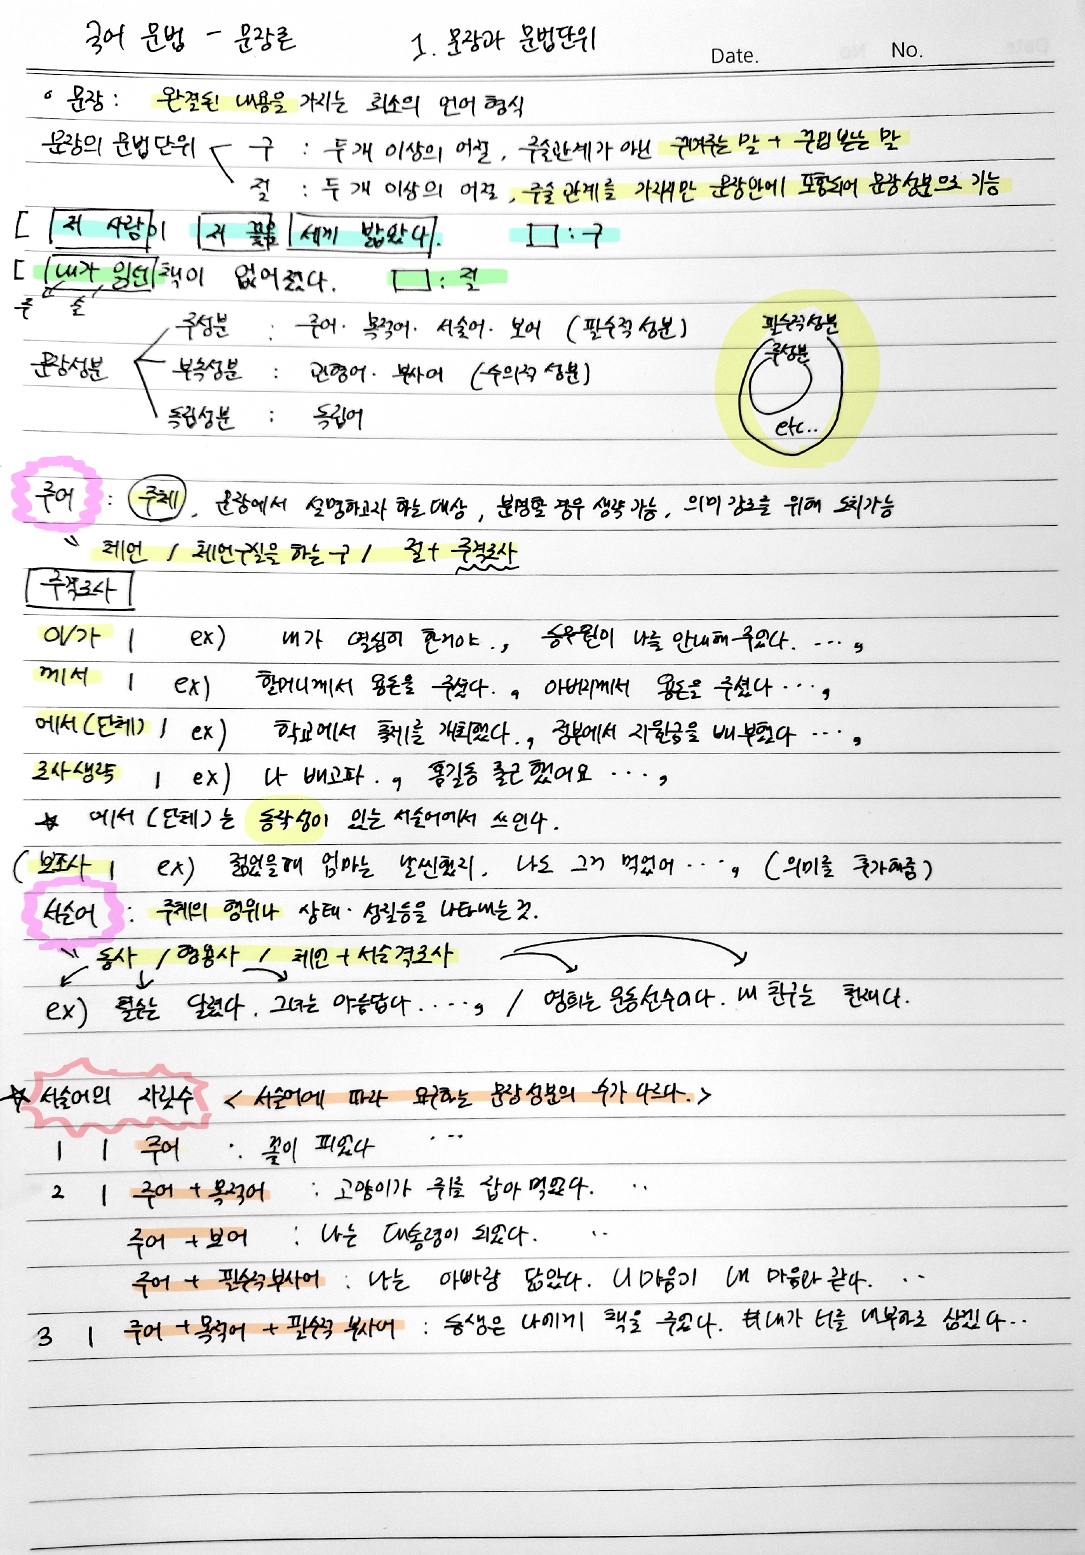 국어 문법 - 문장론 1. 문장과 문법단위
Date. No.
문장 : 완결된 내용을 가지는 최소의 언어 형식
문장의 문법단위 구 : 두개 이상의 어절, 주술관계가 아닌 꾸며주는 말 + 꾸밈 받는 말
절 : 두개 이상의 어절, 주술관계를 가지지만 문장안에 포함되어 문장성분으로 기능
[ 저 사람이 저 꽃을 세게 밟았다. □ : 구
[ 내가 읽던 책이 없어졌다. □ : 절
주 술
주성분 : 주어· 목적어· 서술어· 보어 (필수적 성분)
문장성분 부속성분 : 관형어· 부사어 (수의적 성분)
독립성분 : 독립어
필수적성분
주성분
etc..
주어 : 주체, 문장에서 설명하고자 하는 대상, 분명할 경우 생략 가능, 의미 강조를 위해 도치가능
체언 / 체언구실을 하는 구 / 절 + 주격조사
주격조사
이/가 | ex) 내가 열심히 한거야., 승무원이 나를 안내해 주었다. ...,
께서 | ex) 할머니께서 용돈을 주셨다., 아버지께서 용돈을 주셨다 ...,
에서(단체) | ex) 학교에서 축제를 개최했다., 정부에서 지원금을 배부했다 ...,
조사생략 | ex) 나 배고파., 홍길동 출근했어요 ...,
★ 에서(단체)는 동작성이 있는 서술어에서 쓰인다.
(보조사 | ex) 젊었을때 엄마는 날씬했지. 나도 그거 먹었어 ..., (의미를 추가해줌)
서술어 : 주체의 행위나 상태· 성질등을 나타내는 것.
동사 / 형용사 / 체언 + 서술격조사
ex) 철수는 달렸다. 그녀는 아름답다 ....., / 영희는 운동선수이다. 내 친구는 천재다.
★ 서술어의 자릿수 < 서술어에 따라 요구하는 문장성분의 수가 다르다.>
1 | 주어 : 꽃이 피었다 ...
2 | 주어 + 목적어 : 고양이가 쥐를 잡아 먹었다. ..
주어 + 보어 : 나는 대통령이 되었다. ..
주어 + 필수적부사어 : 나는 아빠랑 닮았다. 니 마음이 내 마음과 같다. ..
3 | 주어 + 목적어 + 필수적 부사어 : 동생은 나에게 책을 주었다. 내가 너를 내 부하로 삼겠다..